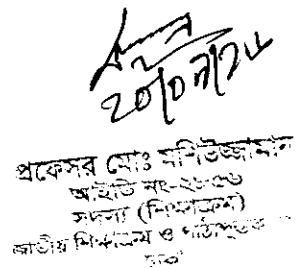 ২০/০৭/১৮
প্রফেসর মোঃ মশিউজ্জামান
আইডি নং-২৮৩৬
সদস্য (শিক্ষাক্রম)
জাতীয় শিক্ষাক্রম ও পাঠ্যপুস্তক
ঢাকা